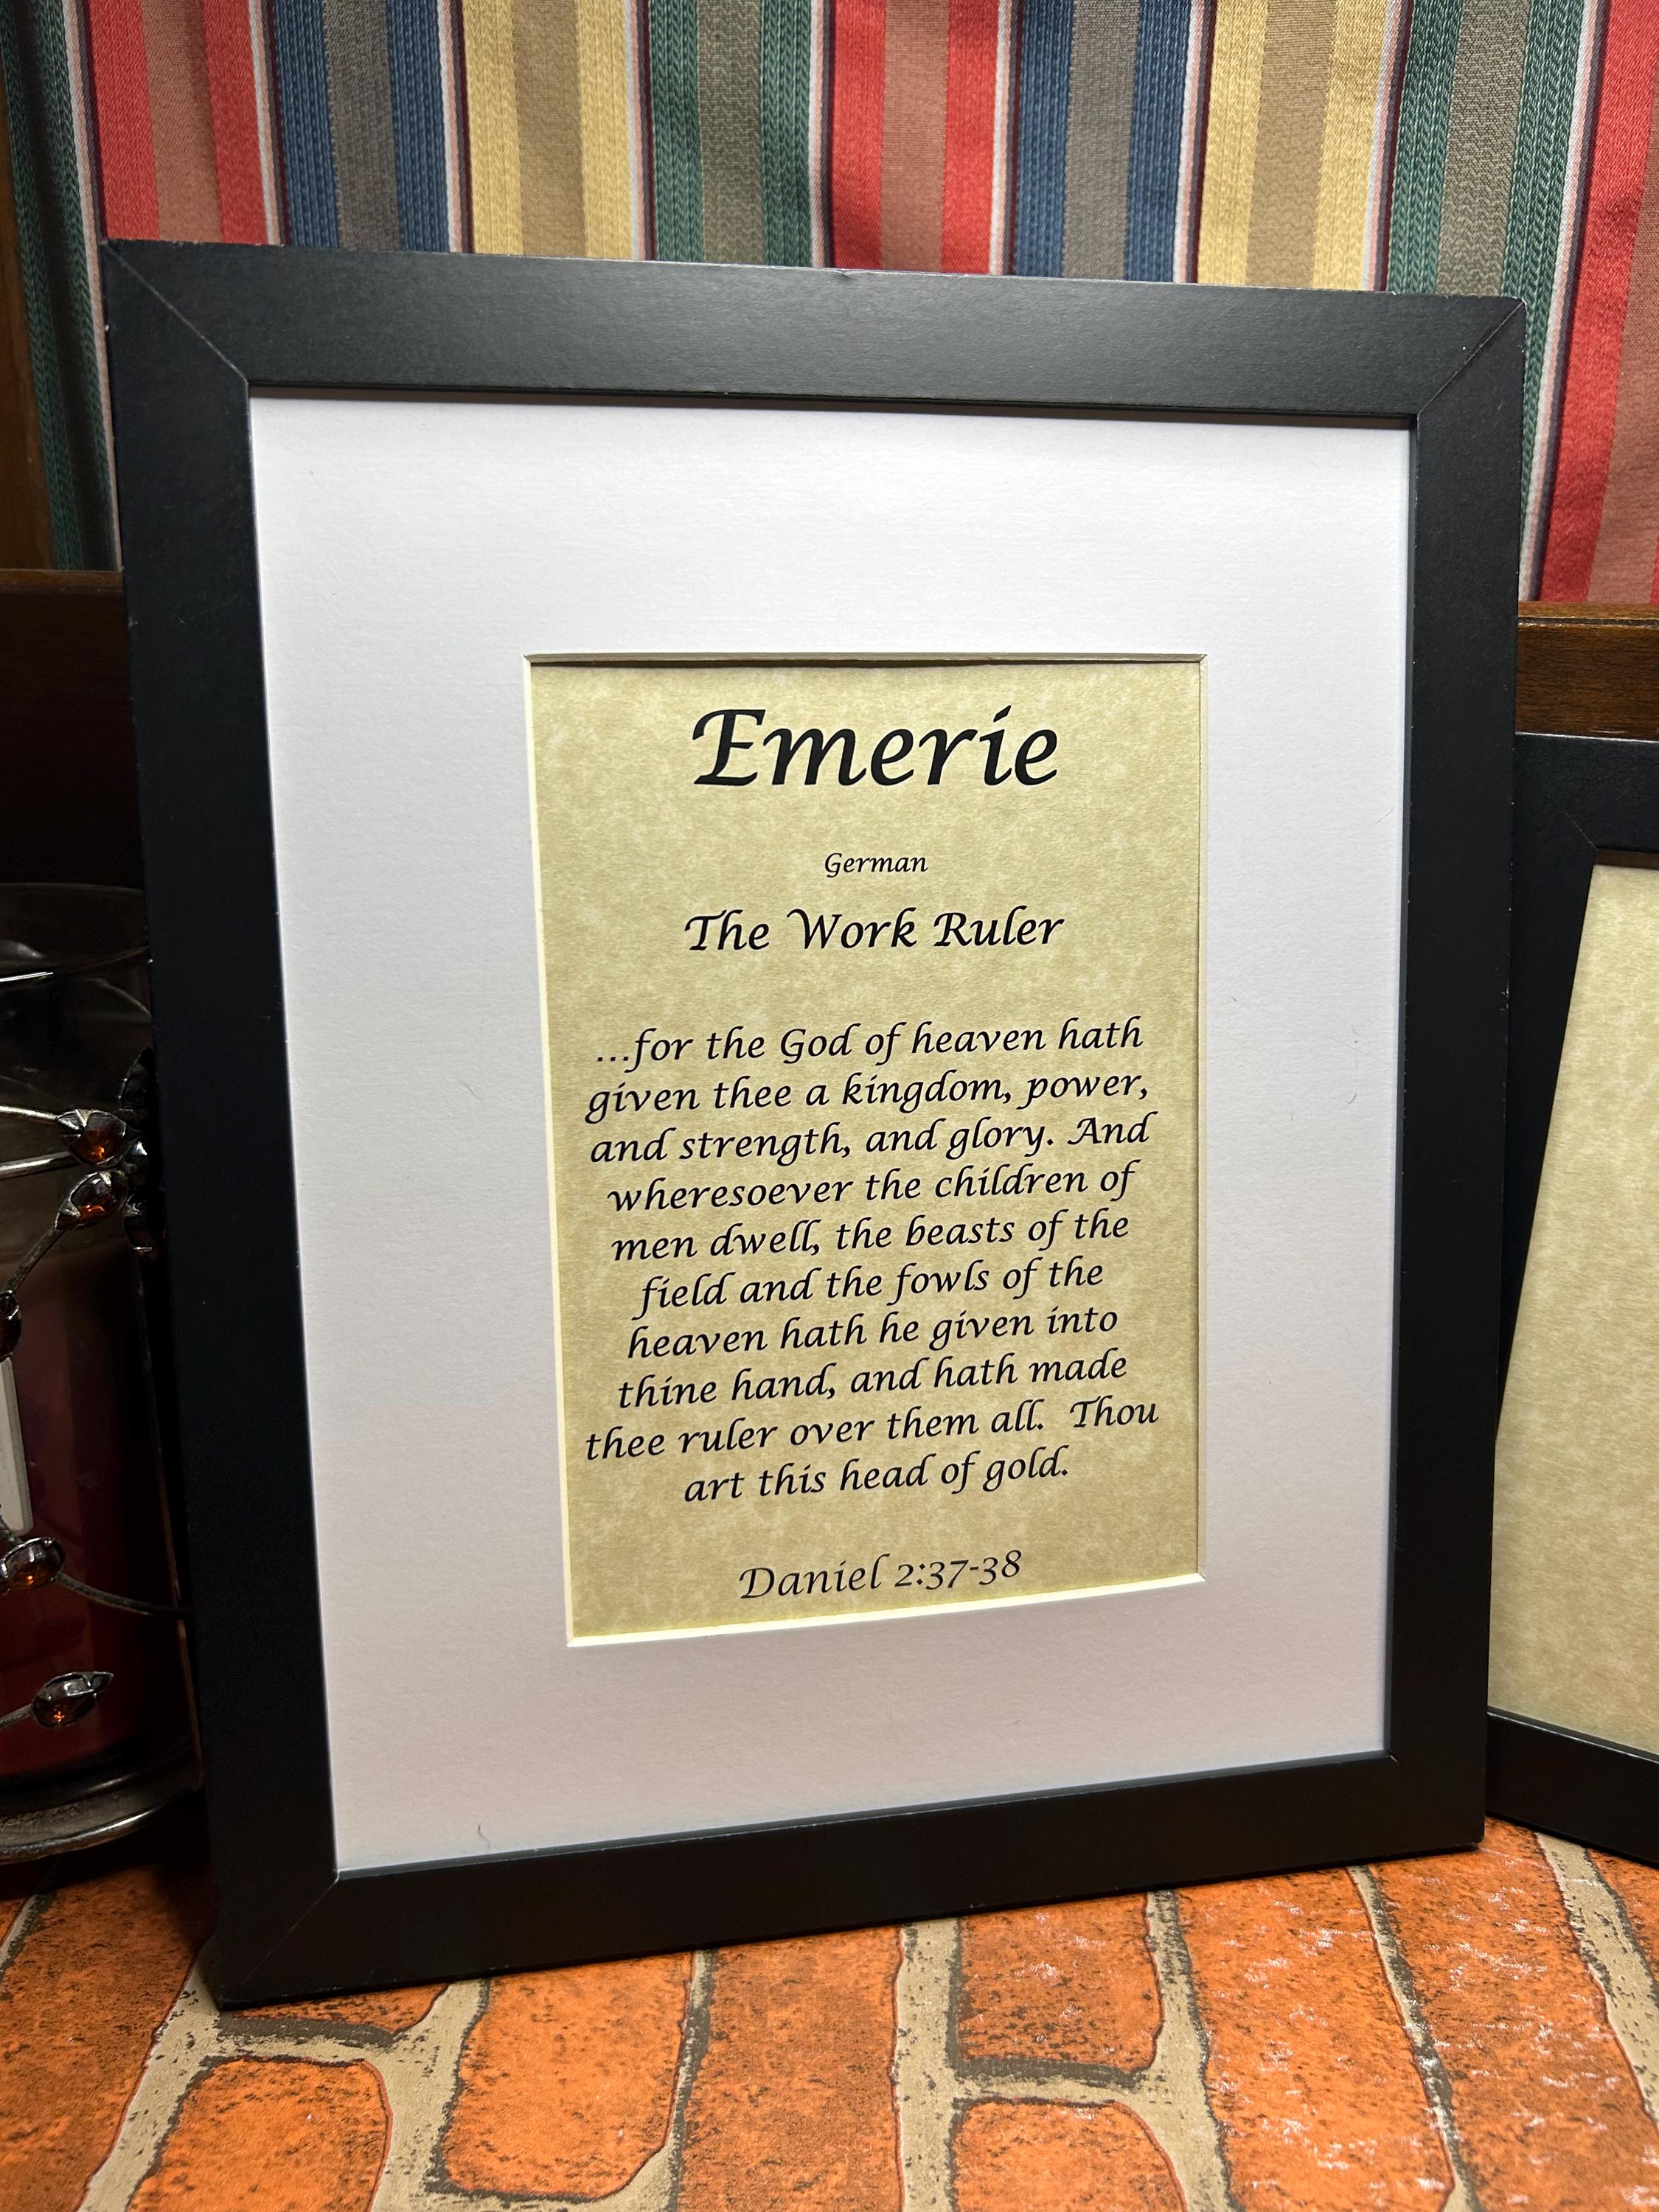 Emerie
German
The Work Ruler
...for the God of heaven hath
given thee a kingdom, power,
and strength, and glory. And
wheresoever the children of
men dwell, the beasts of the
field and the fowls of the
heaven hath he given into
thine hand, and hath made
thee ruler over them all.  Thou
art this head of gold.
Daniel 2:37-38